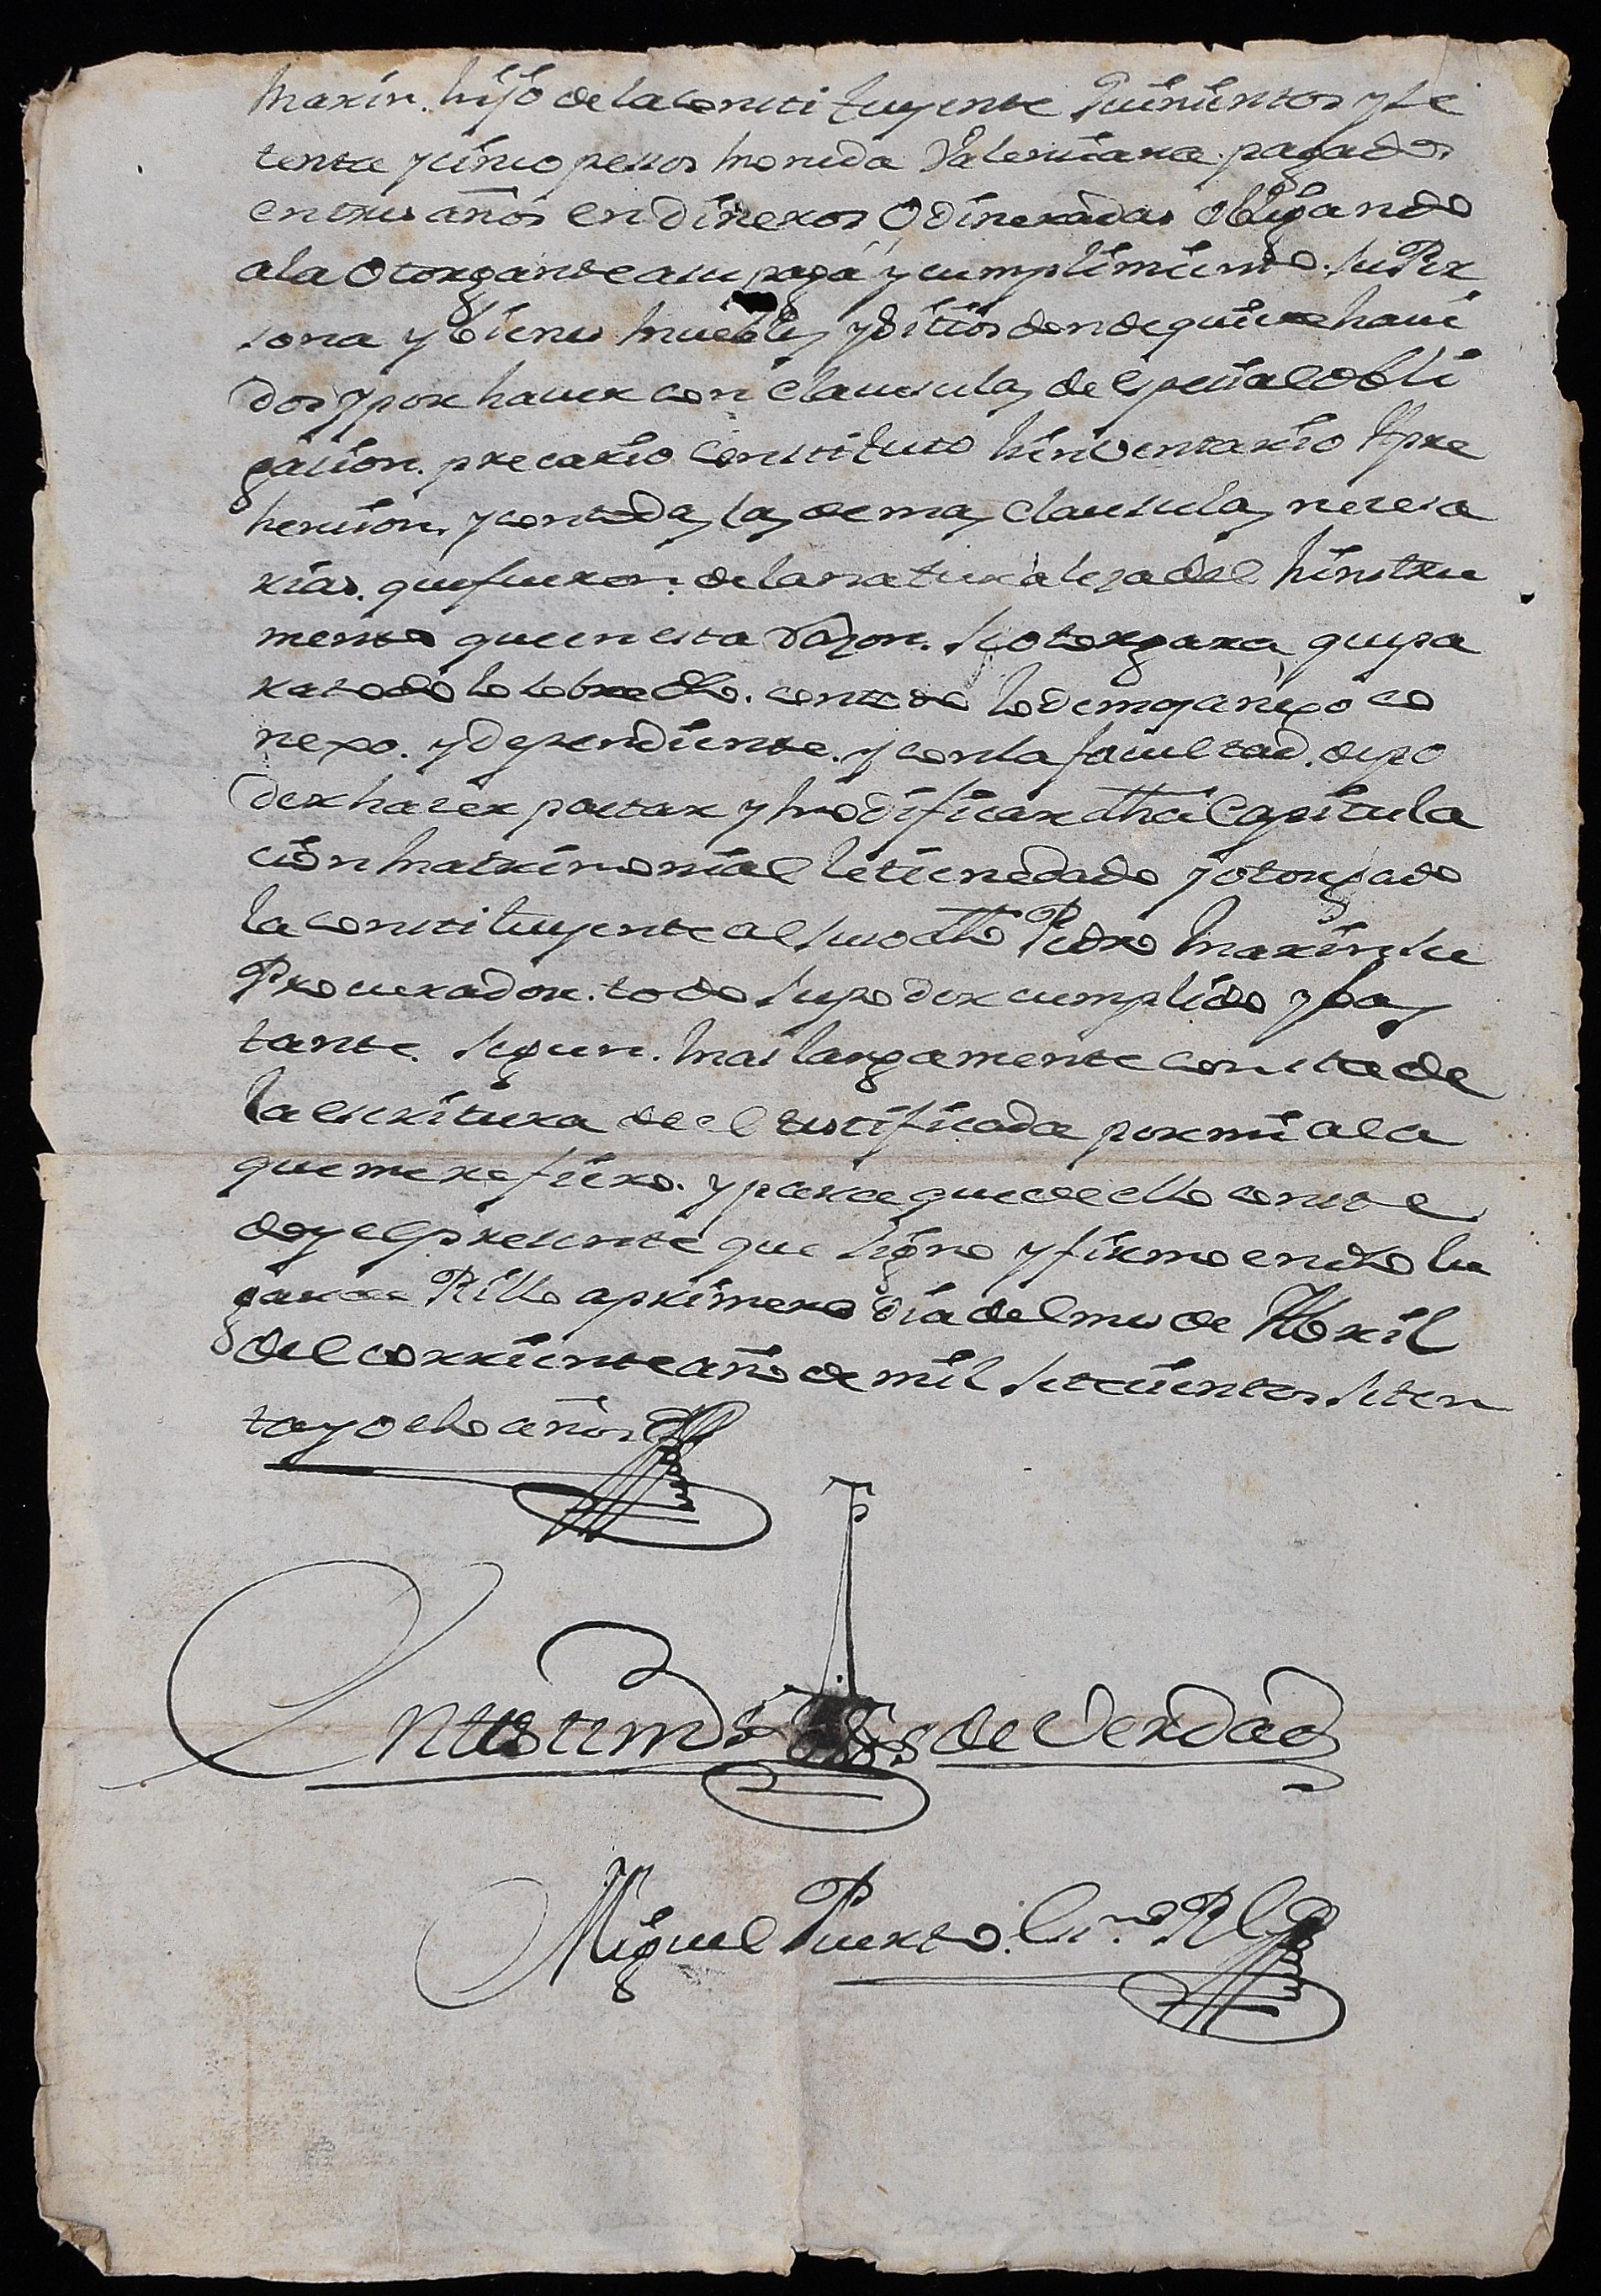 Marin. hijo de la constituyente quinientos y se
tenta y cinco pesos moneda Valenciana pagados
en tres años en dineros o dineradas obligando
a la otorgante a su paga y cumplimiento. su Per
sona y bienes muebles y sitios donde quiere havi
dos y por haver con clausulas de especial obli
gacion. precario constituto hinventario Apre
hension. y con todas las demas clausulas necesa
rias. que fueren. de la naturaleza del hinstru
mento que en esta razon. se otorgara que pa
ra todo lo sobre dho. con todo lo demas anexo co
nexo. y dependiente. y con la facultad. de po
der hacer pactar y modificar dha Capitula
cion matrimonial le tiene dado y otorgado
la constituyente al suso dho Pedro Marin su
Procurador. todo su poder cumplido y bas
tante. segun. mas largamente consta de
la escritura de el testificada por mi a la
que me refiero. y para que de ello conste
doy el presente que signo y firmo en dho lu
gar de Rillo a primero dia del mes de Abril
del corriente año de mil setecientos seten
ta y ocho años
En testimo de Verdad
Miguel Puerto. Es.no Rl